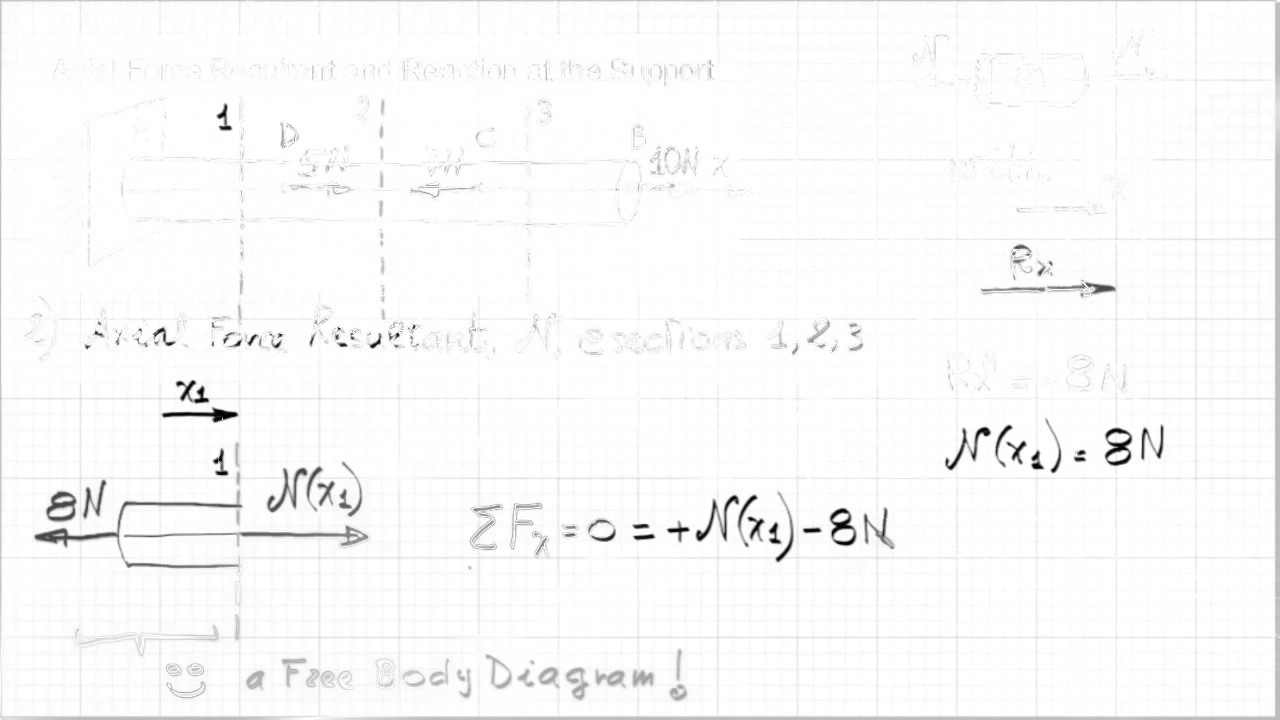 Axial Force Resultant and Reaction at the Support
N N
1 2 3
A D C B
5N 7N 10N x
x
Rx
2) Axial Force Resultant, N, @ sections 1,2,3
x1
Rx^A = -8N
1
N(x1) = 8N
8N N(x1)
ΣFx = 0 = +N(x1) - 8N
a Free Body Diagram!